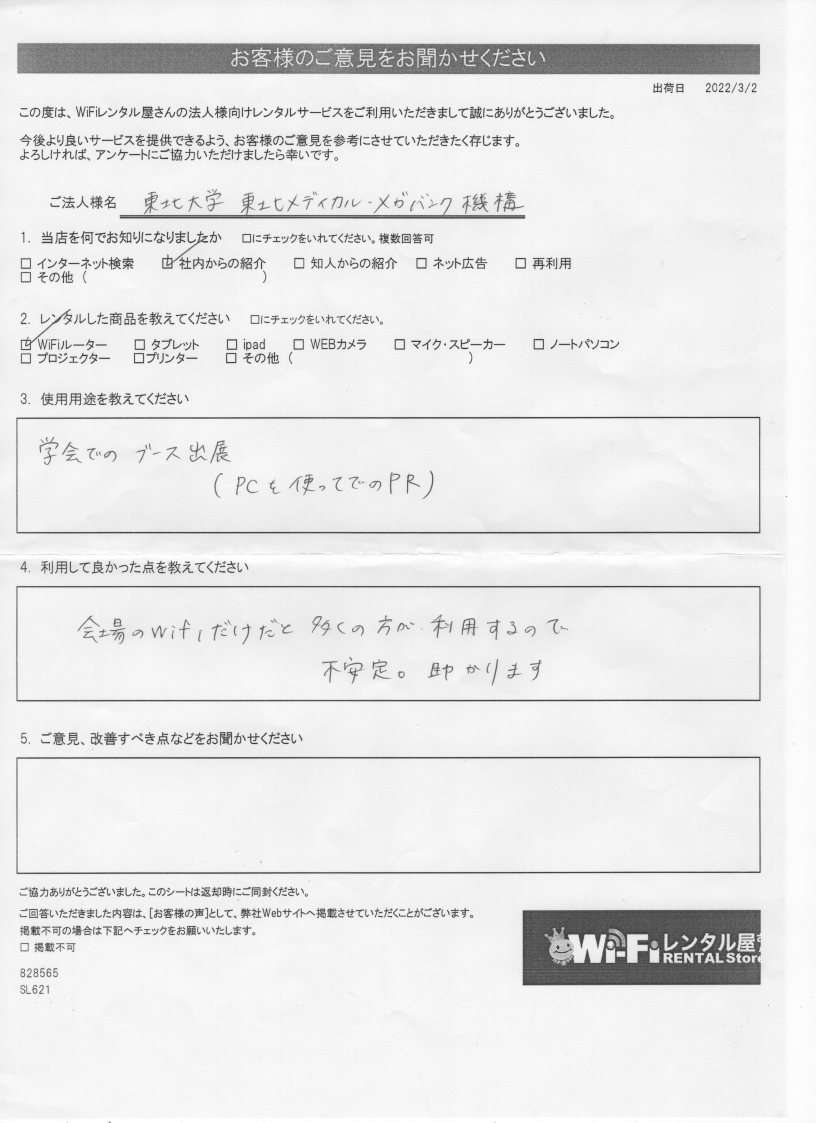 お客様のご意見をお聞かせください
出荷日 2022/3/2
この度は、WiFiレンタル屋さんの法人様向けレンタルサービスをご利用いただきまして誠にありがとうございました。
今後より良いサービスを提供できるよう、お客様のご意見を参考にさせていただきたく存じます。
よろしければ、アンケートにご協力いただけましたら幸いです。
ご法人様名 東北大学 東北メディカル・メガバンク機構
1. 当店を何でお知りになりましたか □にチェックをいれてください。複数回答可
□ インターネット検索 ☑ 社内からの紹介 □ 知人からの紹介 □ ネット広告 □ 再利用
□ その他 ( )
2. レンタルした商品を教えてください □にチェックをいれてください。
☑ WiFiルーター □ タブレット □ ipad □ WEBカメラ □ マイク・スピーカー □ ノートパソコン
□ プロジェクター □プリンター □ その他 ( )
3. 使用用途を教えてください
学会での ブース出展
(PCを使ってでのPR)
4. 利用して良かった点を教えてください
会場のwifiだけだと 多くの方が利用するので
不安定。助かります
5. ご意見、改善すべき点などをお聞かせください
ご協力ありがとうございました。このシートは返却時にご同封ください。
ご回答いただきました内容は、[お客様の声]として、弊社Webサイトへ掲載させていただくことがございます。
掲載不可の場合は下記へチェックをお願いいたします。
□ 掲載不可
828565
SL621
Wi-Fi レンタル屋
RENTAL Store